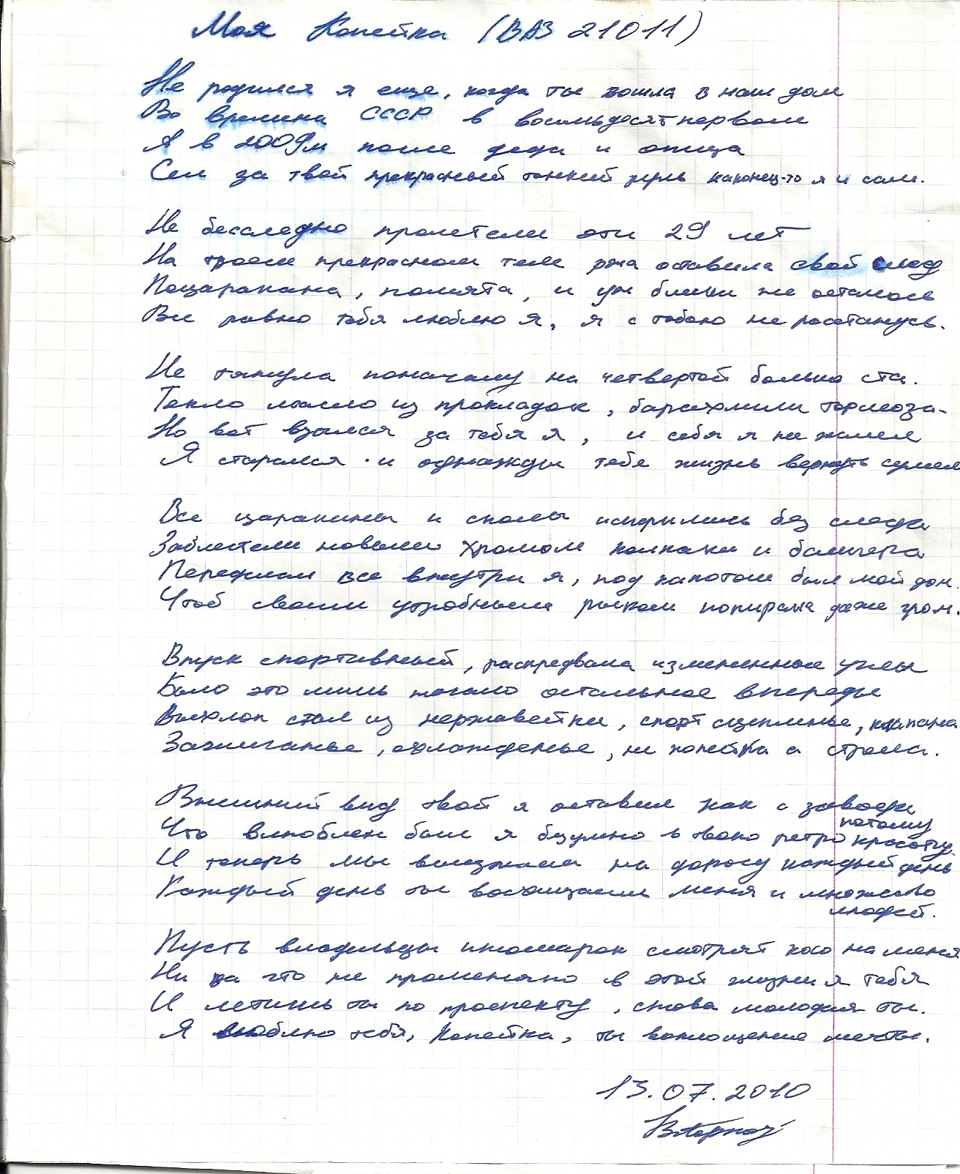 Моя Копейка (ВАЗ 21011)
Не родился я еще, когда ты вошла в наш дом
Во времена СССР в восемьдесят первом
А в 2009м после деда и отца
Сел за твой прекрасный тонкий руль наконец-то я и сам.
Не бесследно пролетели эти 29 лет
На твоем прекрасном теле ржа оставила свой след
Поцарапана, помята, и уж блеска не осталось
Все равно тебя люблю я, я с тобою не расстанусь.
Не тянула поначалу на четвертой больше ста.
Текло масло из прокладок, барахлили тормоза.
Но вот взялся за тебя я, и себя я не жалел
Я старался и однажды тебе жизнь вернуть сумел
Все царапины и сколы испарились без следа
Заблестели новым хромом колпаки и бампера
Переделал все внутри я, под капотом был мой дом.
Чтоб своим утробным рыком попирала даже гром.
Впуск спортивный, распредвала измененные углы
Было это лишь начало остальное впереди
Выхлоп стал из нержавейки, спорт сцепленье, клапана
Зажиганье, охлажденье, не копейка а стрела.
Внешний вид твой я оставил как с завода
потому
Что влюблен был я безумно в твою ретро красоту.
И теперь мы выезжаем на дорогу каждый день
Каждый день ты восхищаешь меня и множество
людей.
Пусть владельцы иномарок смотрят косо на меня
Ни за что не променяю в этой жизни я тебя
И летишь ты по проспекту, снова молодая ты.
Я люблю тебя, Копейка, ты воплощение мечты.
13.07.2010